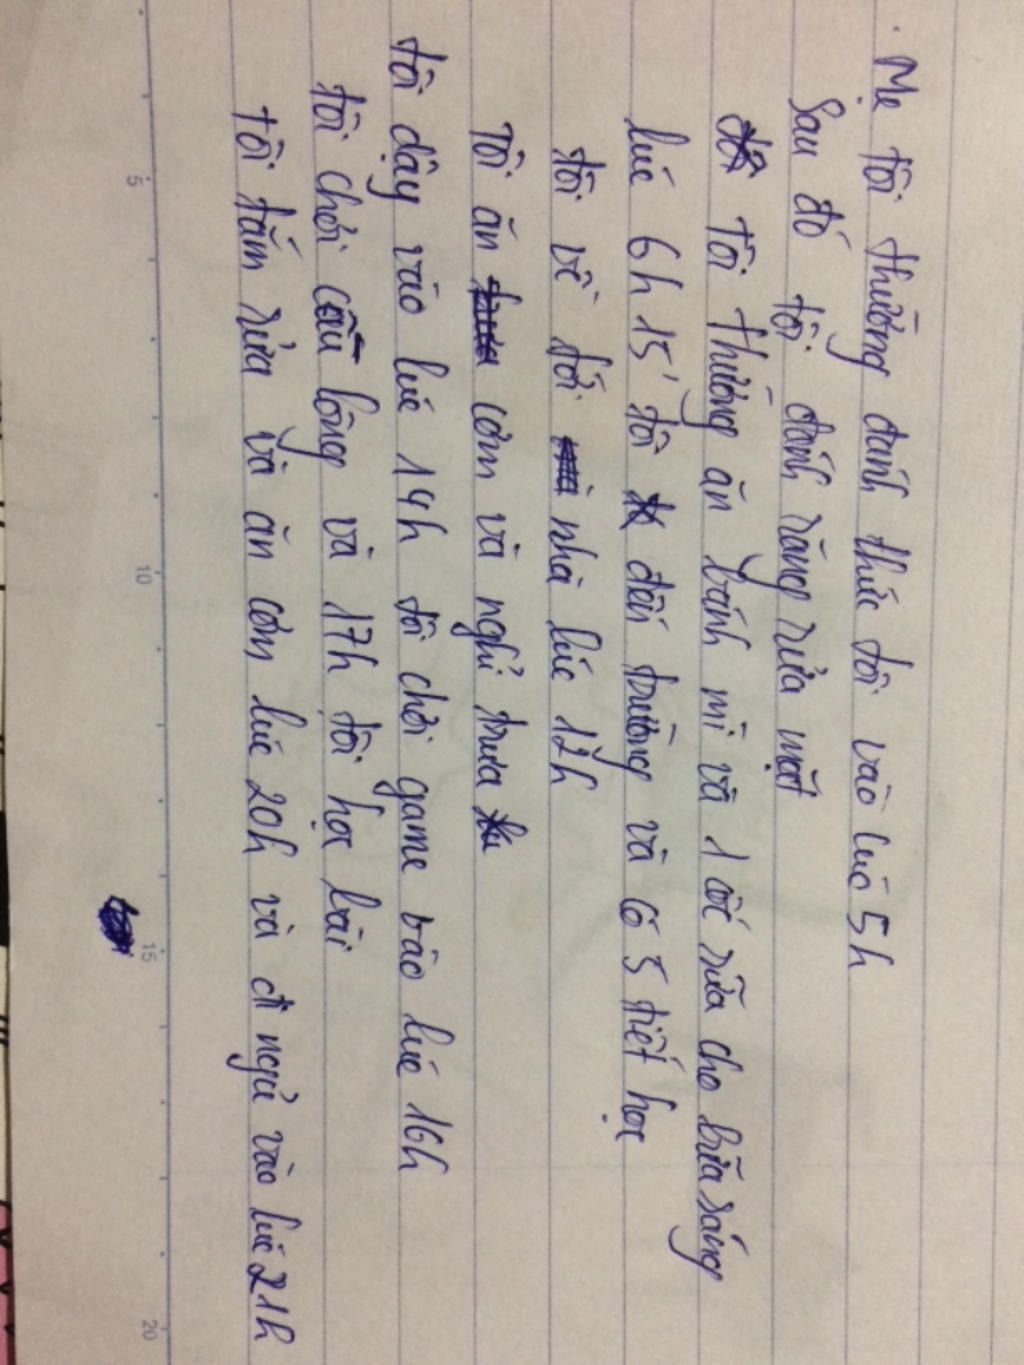 Mẹ tôi thường đánh thức tôi vào lúc 5h
Sau đó tôi đánh răng rửa mặt
tôi thường ăn bánh mì và 1 cốc sữa cho bữa sáng
lúc 6h15' tôi đến trường và có 5 tiết học
tôi về tới nhà lúc 12h
Tôi ăn cơm và nghỉ trưa
tôi dậy vào lúc 14h tôi chơi game vào lúc 16h
tôi chơi cầu lông và 17h tôi học bài
tôi tắm rửa và ăn cơm lúc 20h và đi ngủ vào lúc 21h
5 10 15 20